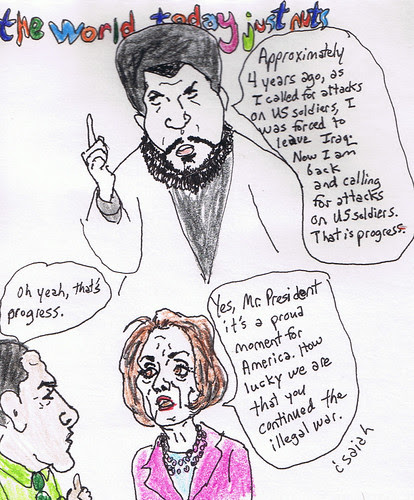 the world today just nuts
Approximately
4 years ago, as
I called for attacks
on US soldiers, I
was forced to
leave Iraq.
Now I am
back
and calling
for attacks
on US soldiers.
That is progress.
Oh yeah, that's
progress.
Yes, Mr. President
it's a proud
moment for
America. How
lucky we are
that you
continued the
illegal war.
isaiah